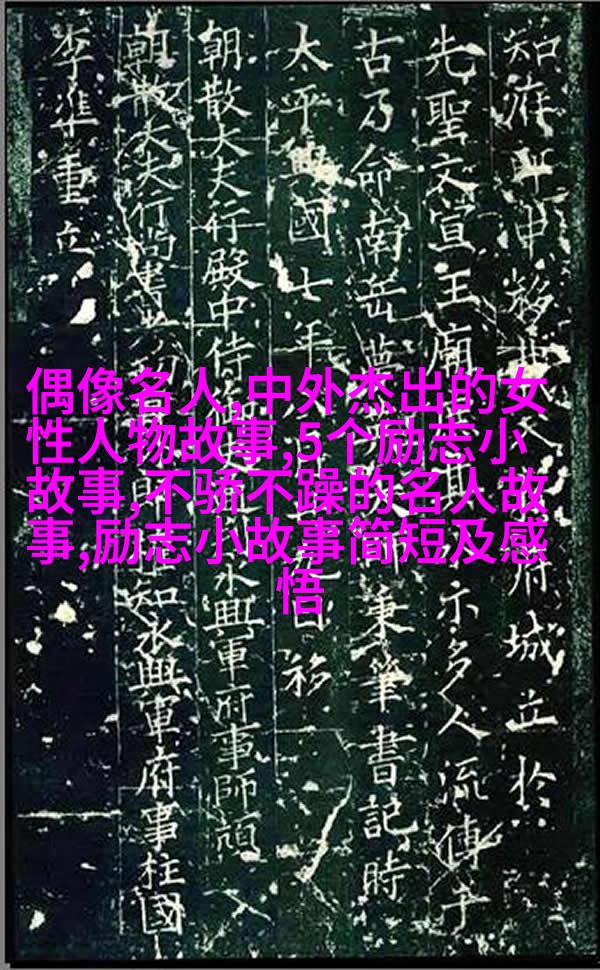 偶像名人,中外杰出的女
性人物故事,5个励志小
故事,不骄不躁的名人故
事,励志小故事简短及感
悟
知府郎中移此文府城立於
先聖文宣王廟其示多人流傳千
古乃命南岳秉筆書記時
太平興國七年日移
朝散大夫行殿中侍永興軍府事師頏
朝散大夫行尚書知永興軍府事柱國
李準重立